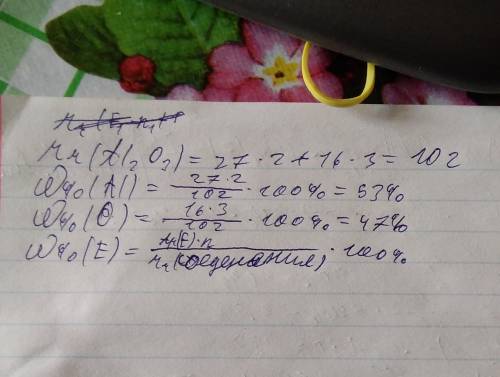 Mr(Al₂O₃) = 27·2+16·3 = 102
W%(Al) = 27·2/102 · 100% = 53%
W%(O) = 16·3/102 · 100% = 47%
W%(E) = Ar(E)·n/Mr(соеденания) · 100%